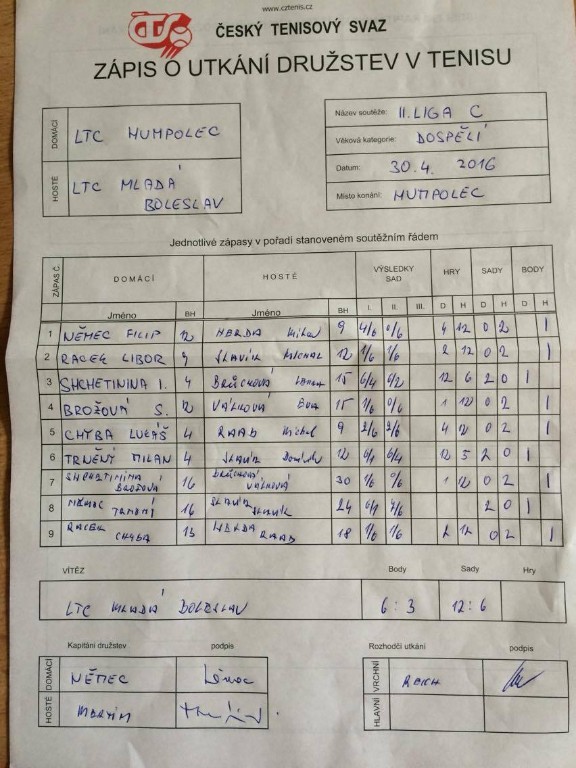 www.cztenis.cz
ČTS
ČESKÝ TENISOVÝ SVAZ
ZÁPIS O UTKÁNÍ DRUŽSTEV V TENISU
DOMÁCÍ LTC HUMPOLEC
HOSTÉ LTC MLADÁ BOLESLAV
Název soutěže: II. LIGA C
Věková kategorie: DOSPĚLÍ
Datum: 30.4. 2016
Místo konání: HUMPOLEC
Jednotlivé zápasy v pořadí stanoveném soutěžním řádem
ZÁPAS Č. DOMÁCÍ HOSTÉ VÝSLEDKY SAD HRY SADY BODY
Jméno BH Jméno BH I. II. III. D H D H D H
1 NĚMEC FILIP 12 HERDA 9 4/6 0/6 4 12 0 2 1
2 RACEK LIBOR 9 SLAVÍK MICHAL 12 1/6 1/6 2 12 0 2 1
3 SHCHETININA I. 4 BRŮCHOVÁ 15 6/4 6/2 12 6 2 0 1
4 BROŽOVÁ S. 12 VÁLKOVÁ EVA 15 1/6 0/6 1 12 0 2 1
5 CHYBA LUKÁŠ 4 RAAB Michal 9 2/6 2/6 4 12 0 2 1
6 TRNĚNÝ MILAN 4 SLAVÍK Dominik 12 6/1 6/4 12 5 2 0 1
7 BROŽOVÁ 16 BRŮCHOVÁ VÁLKOVÁ 30 1/6 0/6 1 12 0 2 1
8 NĚMEC 16 SLAVÍK SLAVÍK 24 2 0 1
9 RACEK CHYBA 13 HERDA RAAB 18 1/6 1/6 2 12 0 2 1
VÍTĚZ Body Sady Hry
LTC MLADÁ BOLESLAV 6 : 3 12 : 6
Kapitáni družstev podpis Rozhodčí utkání podpis
DOMÁCÍ NĚMEC
HOSTÉ MARTIN
VRCHNÍ REICH
HLAVNÍ